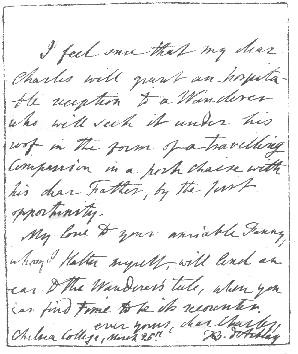 I feel sure that my dear
Charles will grant an hospita-
ble reception to a Wanderer
who will seek it under his
roof in the form of a travelling
Companion in a post chaise with
his dear Father, by the first
opportunity.
My love to your amiable Fanny,
whom I flatter myself, will lend an
ear to the Wanderer's tale, when you
can find time to be its recounter.
ever yours, dear Charles,
Chelsea College, March 25th